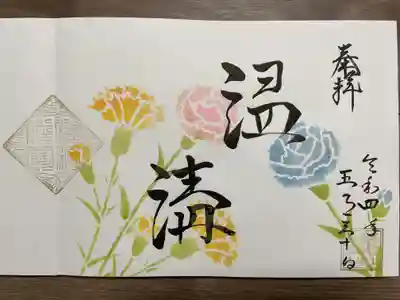 奉拝
温清
令和四年
五月三十日